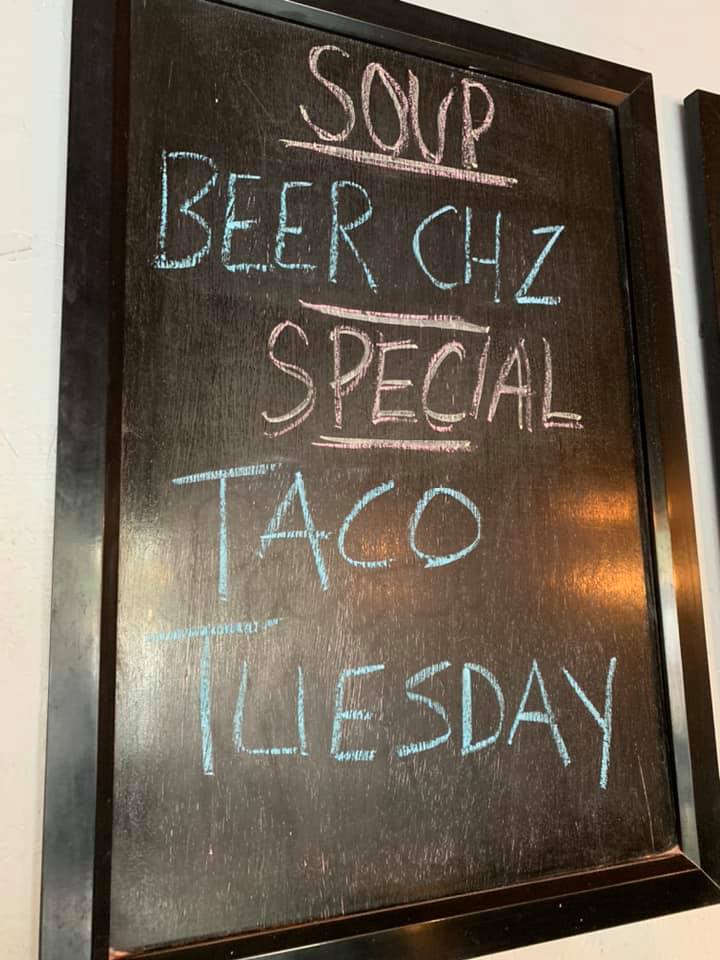 SOUP
BEER CHZ
SPECIAL
TACO
TUESDAY